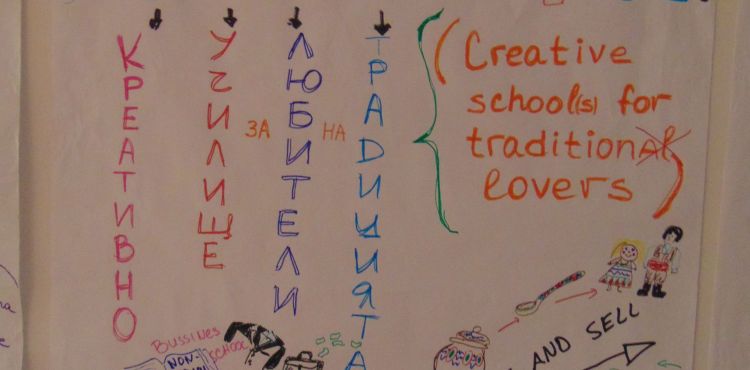 КРЕАТИВНО
УЧИЛИЩЕ
ЗА
ЛЮБИТЕЛИ
НА
ТРАДИЦИЯТА
(Creative
school(s) for
traditional
lovers)
BUSSINES
SCHOOL
NON-
AND SELL